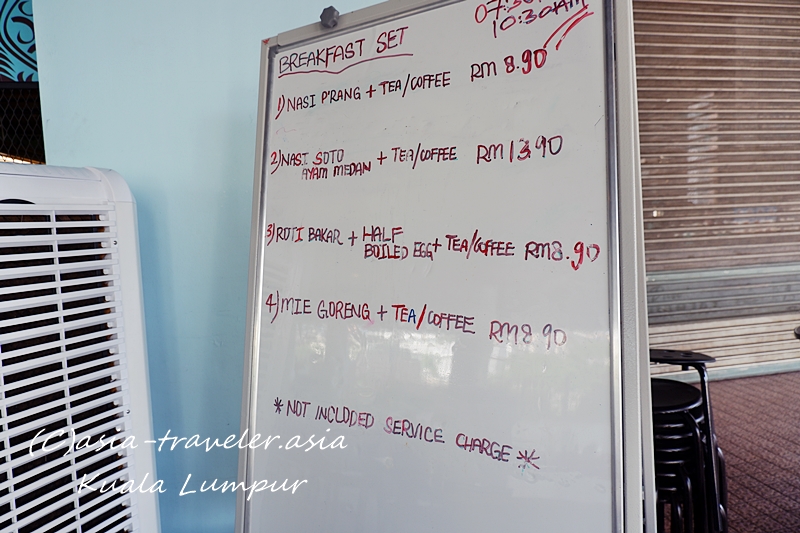 BREAKFAST SET
10:30AM
1) NASI P'RANG + TEA/COFFEE RM 8.90
2) NASI SOTO AYAM MEDAN + TEA/COFFEE RM 13.90
3) ROTI BAKAR + HALF BOILED EGG + TEA/COFFEE RM8.90
4) MIE GORENG + TEA/COFFEE RM8.90
* NOT INCLUDED SERVICE CHARGE *
(C)asia-traveler.asia
Kuala Lumpur